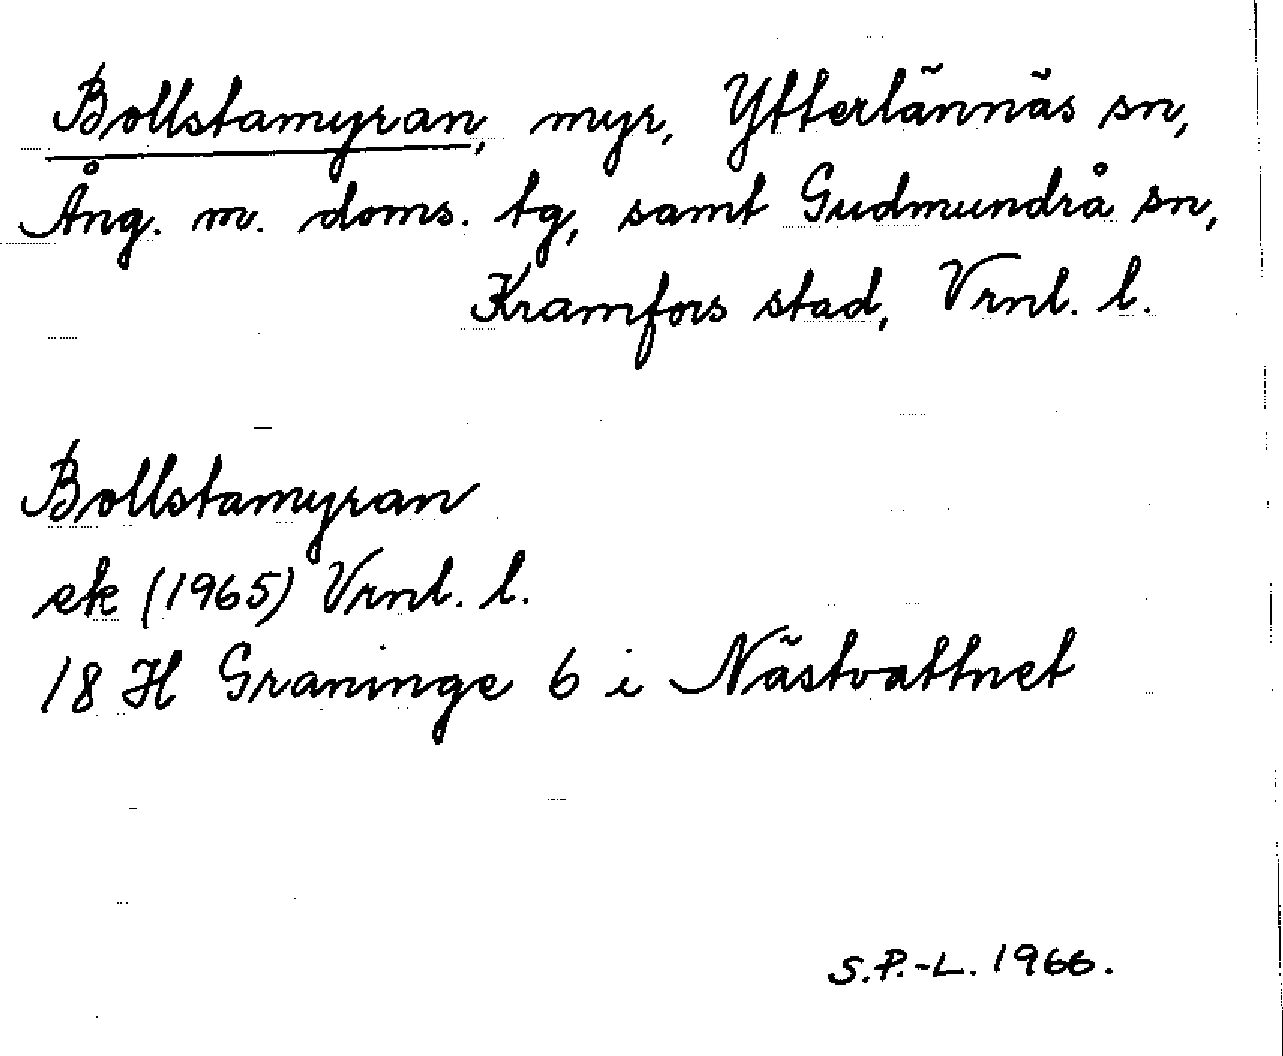 Bollstamyran, myr, Ytterlännäs sn,
Ång. m. doms. tg, samt Gudmundrå sn,
Kramfors stad, Vrnl. l.
Bollstamyran
ek (1965) Vrnl. l.
18 H Graninge 6 i Nästvattnet
S.P.-L. 1966.